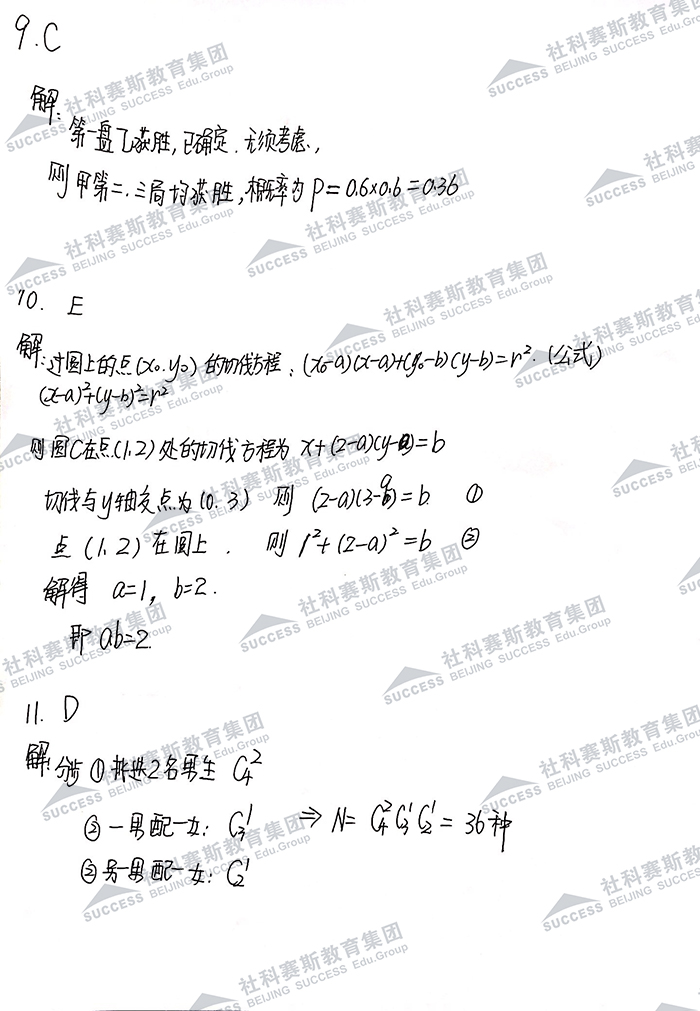 9.C
解:
第一盘乙获胜,已确定.无须考虑,
则甲第二.三局均获胜,概率为P=0.6×0.6=0.36
10. E
解:过圆上的点(x₀.y₀)的切线方程:(x₀-a)(x-a)+(y₀-b)(y-b)=r².(公式)
(x-a)²+(y-b)²=r²
则圆C在点(1,2)处的切线方程为 x+(2-a)(y-a)=b
切线与y轴交点为(0.3) 则 (2-a)(3-a)=b ①
点(1.2)在圆上. 则 1²+(2-a)²=b ②
解得 a=1, b=2.
即 ab=2.
11. D
解:分步 ① 挑选2名男生 C₄²
② 一男配一女: C₃¹ ⇒ N= C₄²C₃¹C₂¹ = 36种
③ 另一男配一女: C₂¹
社科赛斯教育集团
SUCCESS BEIJING SUCCESS Edu.Group